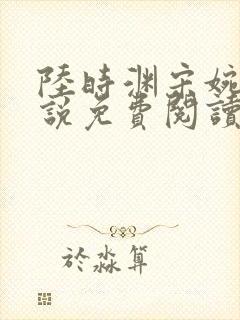 陸時淵宋婉
說免費閱讀
於淼算